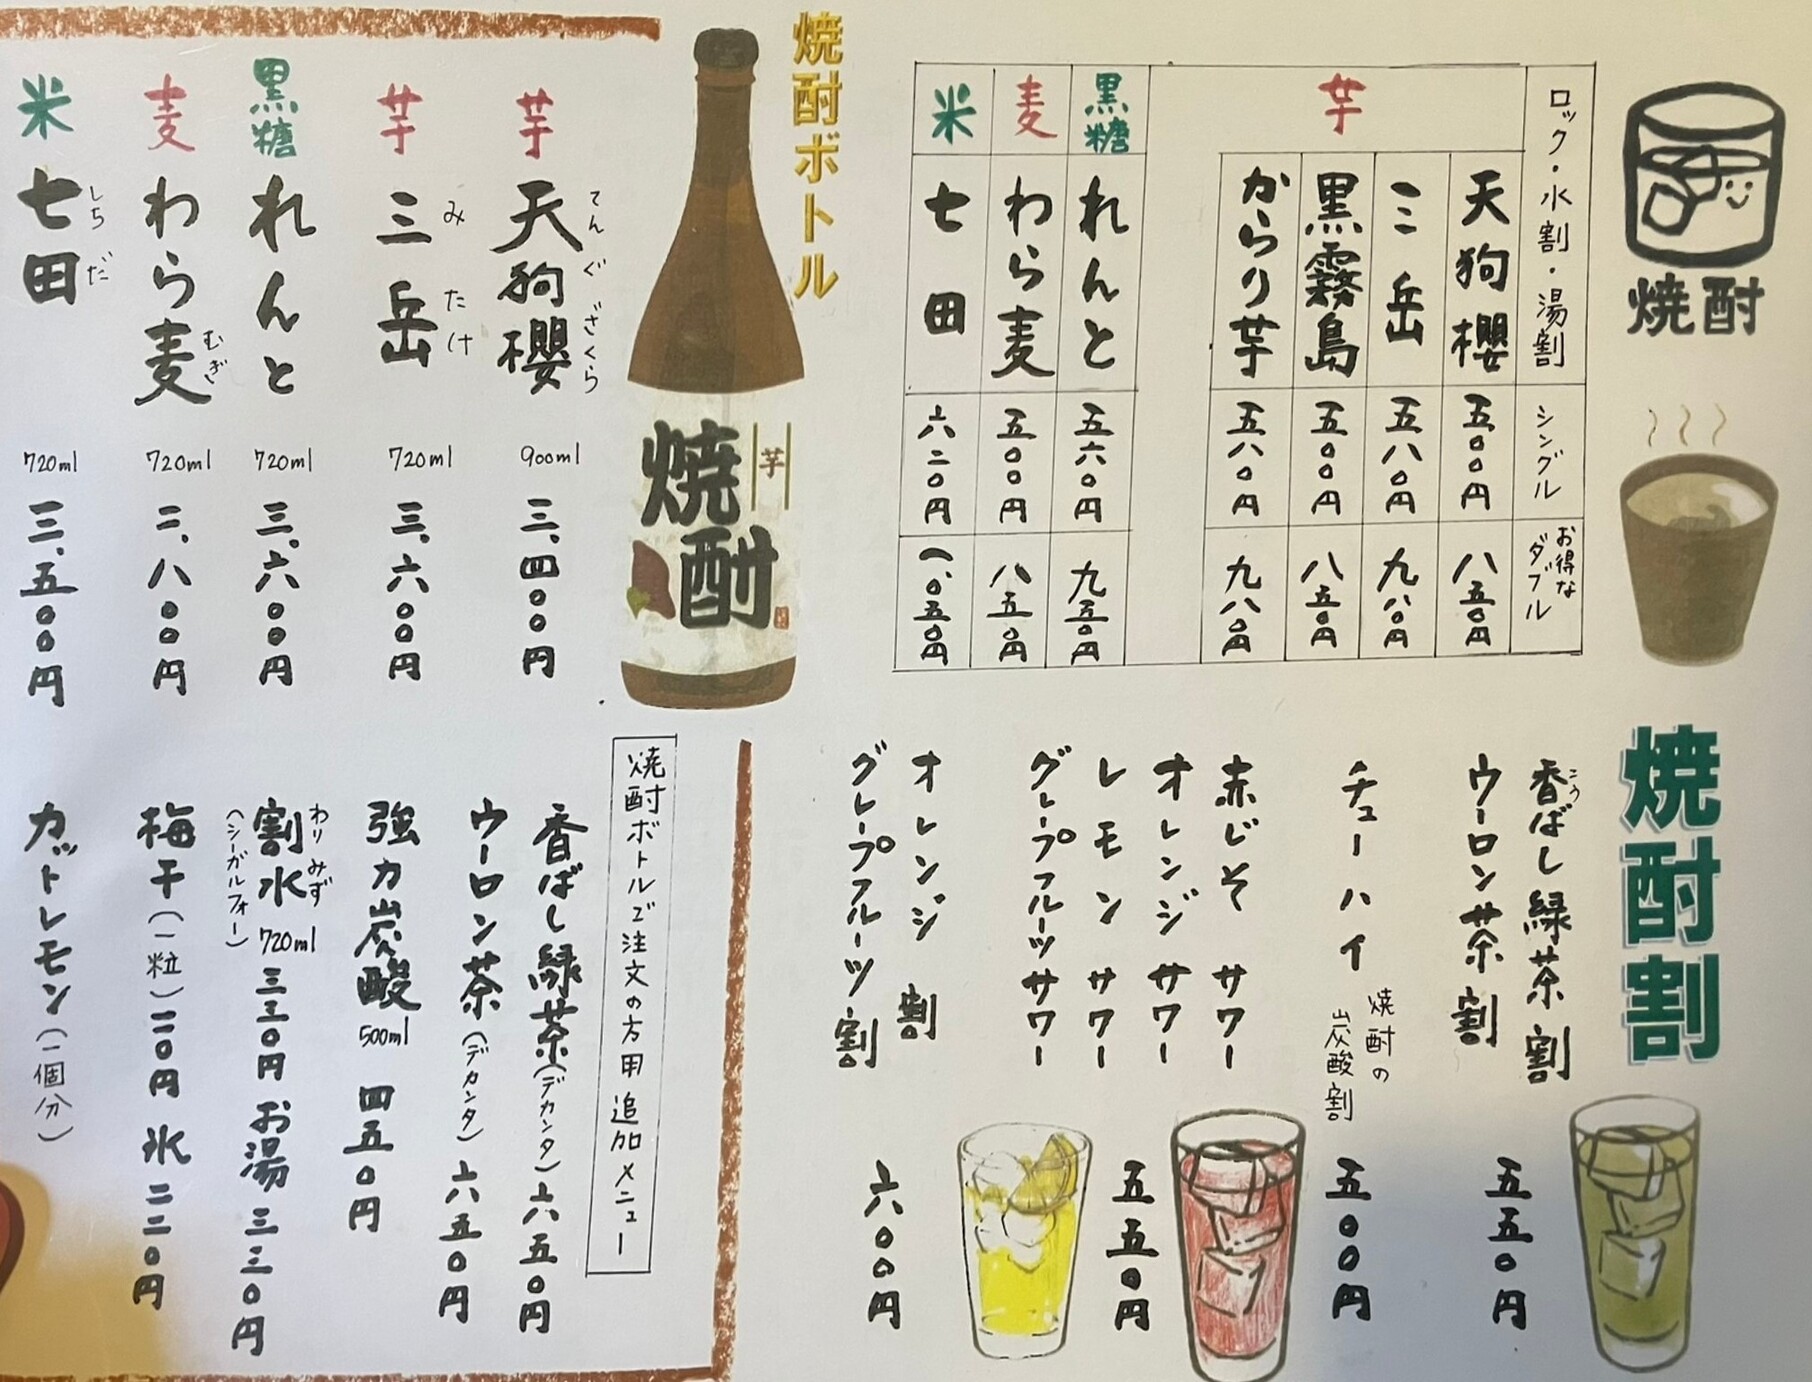 焼酎
ロック・水割・湯割
シングル
お得な
ダブル
芋
天狗櫻
五〇〇円
八五〇円
三岳
五八〇円
九八〇円
黒霧島
五〇〇円
八五〇円
からり芋
五八〇円
九八〇円
黒糖
れんと
五六〇円
九五〇円
麦
わら麦
五〇〇円
八五〇円
米
七田
六二〇円
一、〇五〇円
焼酎割
香ばし緑茶割
こう
ウーロン茶割
五五〇円
チューハイ
焼酎の
炭酸割
五〇〇円
赤じそサワー
オレンジサワー
レモンサワー
グレープフルーツサワー
五五〇円
オレンジ割
グレープフルーツ割
六〇〇円
焼酎ボトル
芋
焼酎
芋
天狗櫻
てんぐざくら
900ml
三、四〇〇円
芋
三岳
みたけ
720ml
三、六〇〇円
黒糖
れんと
720ml
三、六〇〇円
麦
わら麦
むぎ
720ml
二、八〇〇円
米
七田
しちだ
720ml
三、五〇〇円
焼酎ボトルご注文の方用追加メニュー
香ばし緑茶(デカンタ)六五〇円
ウーロン茶(デカンタ)六五〇円
強力炭酸 500ml 四五〇円
割水 720ml 三三〇円 お湯 三三〇円
わりみず
(シーガルフォー)
梅干(一粒)二〇円 氷 二二〇円
カットレモン(一個分)